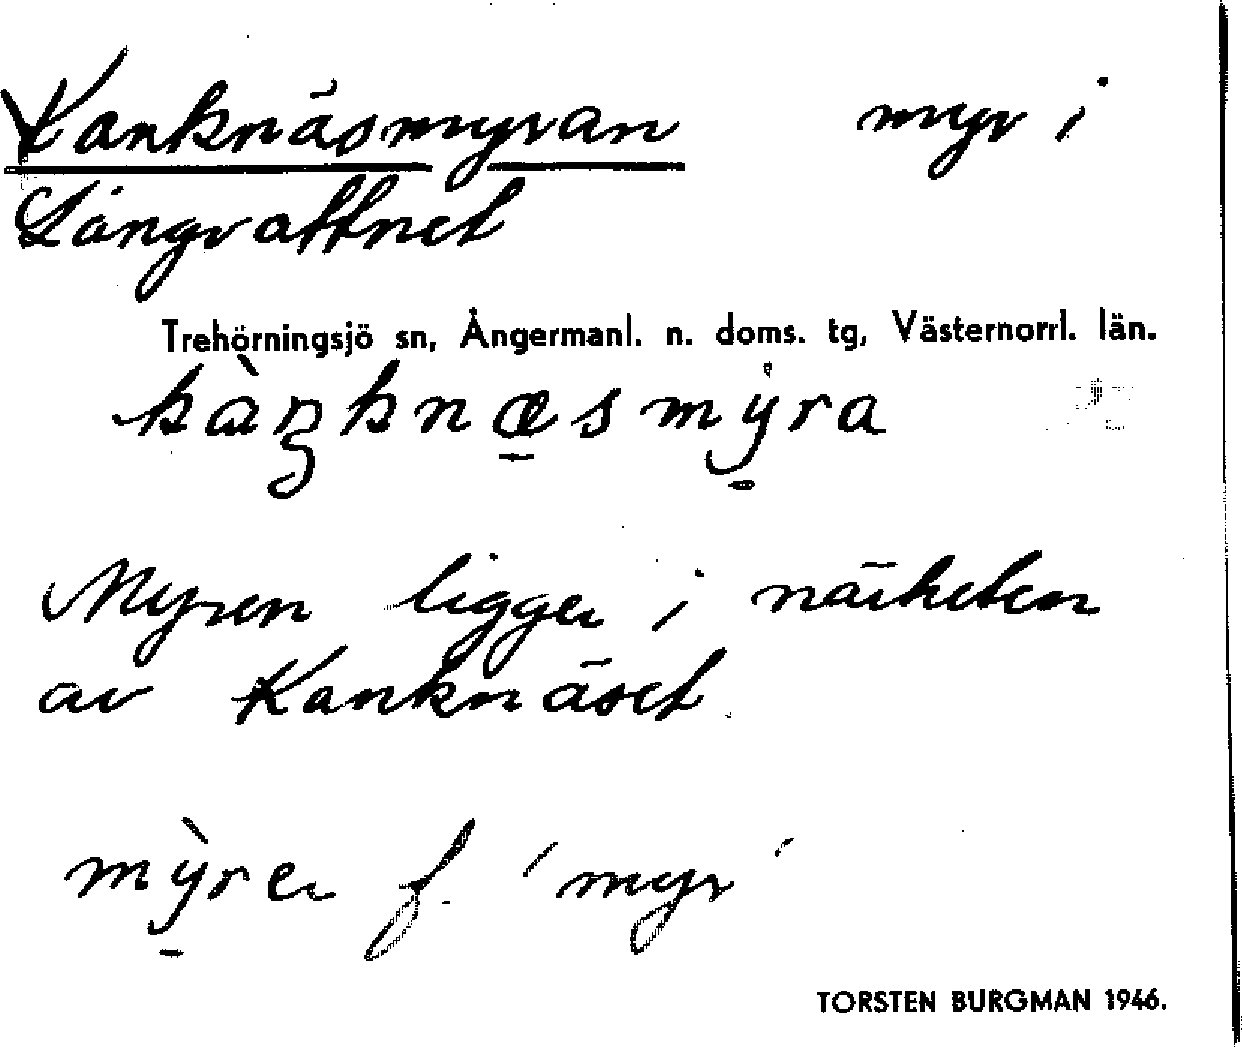 Kanknäsmyran myr i
Långvattnet
Trehörningsjö sn, Ångermanl. n. doms. tg, Västernorrl. län.
kàŋknæ̱smy̱ra
Myren ligger i närheten
av Kanknäset.
mỳ̱rer f. 'myr'
TORSTEN BURGMAN 1946.